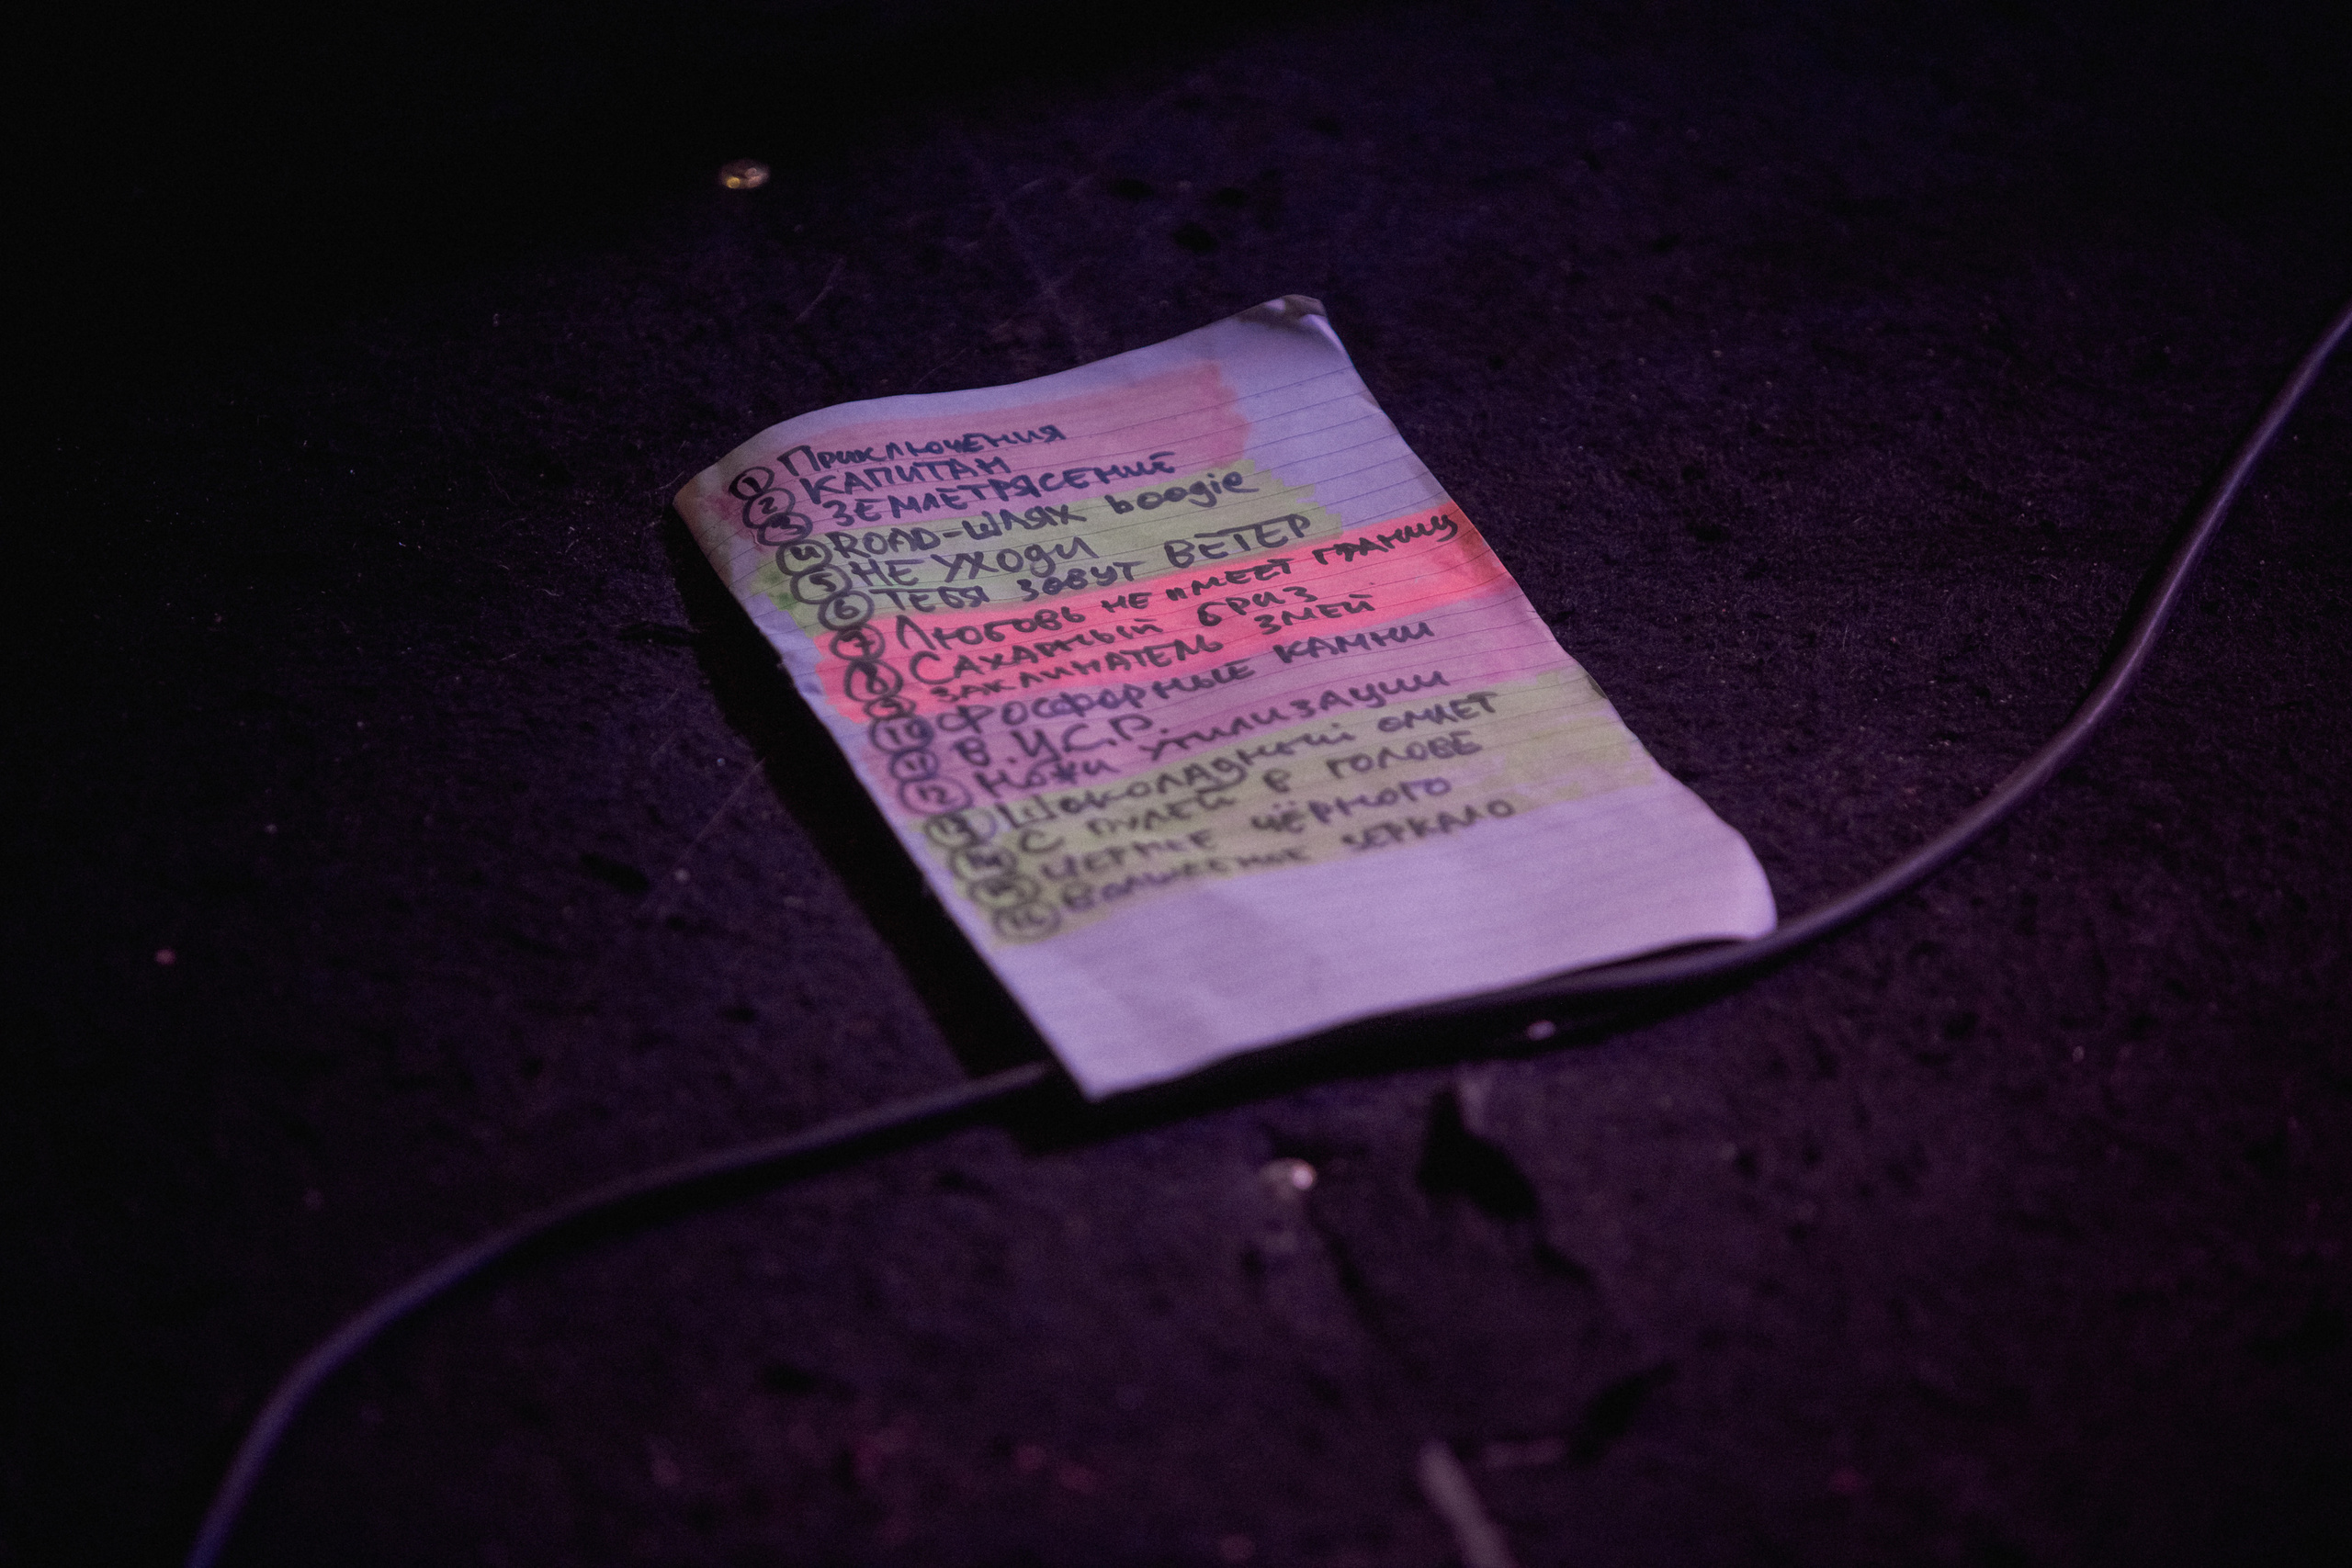 1 Приключения
2 КАПИТАН
3 ЗЕМЛЕТРЯСЕНИЕ
4 ROAD-ШЛЯХ boogie
5 НЕ УХОДИ
6 ТЕБЯ ЗОВУТ ВЕТЕР
7 Любовь не имеет границ
8 Сахарный бриз
9 заклинатель змей
10 Фосфорные камни
11 В.Ц.С.Р.
12 Ножи утилизации
13 Шоколадный омлет
14 С пулей в голове
15 Чернее чёрного
16 Волшебное зеркало